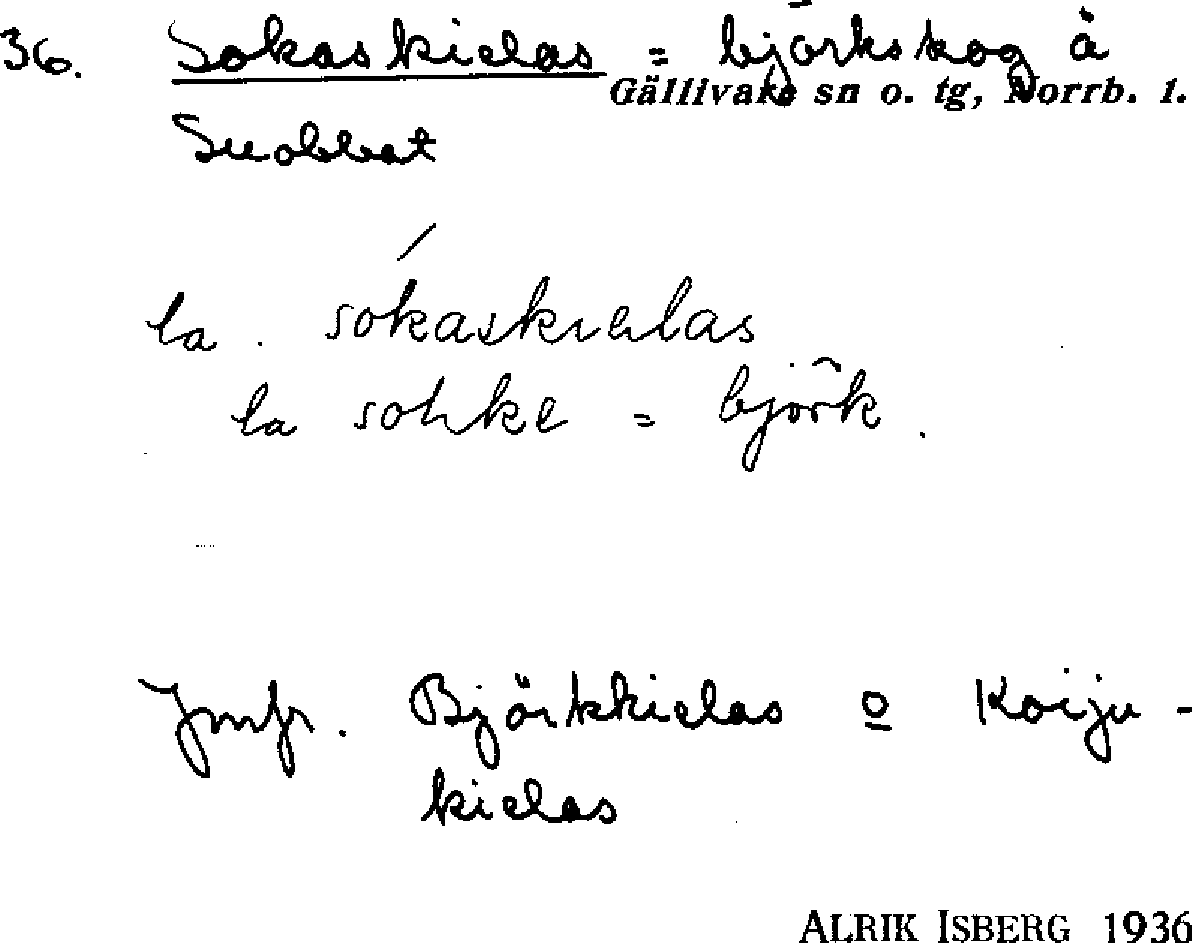 36. Sokaskielas = björkskog å
Gällivare sn o. tg, Norrb. l.
Suobbat
la. sókaskielas
la sohke = björk.
Jmfr. Björkkielas o Koiju-
kielas
ALRIK ISBERG 1936